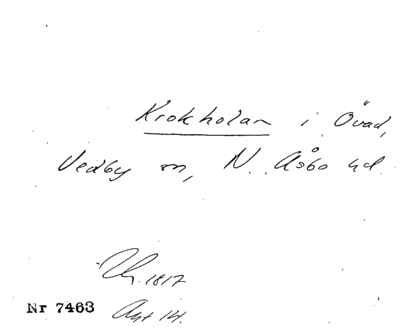 Krokholan i Övad,
Vedby sn, N. Åsbo hd.
1817
Nr 7463
Akt 14.